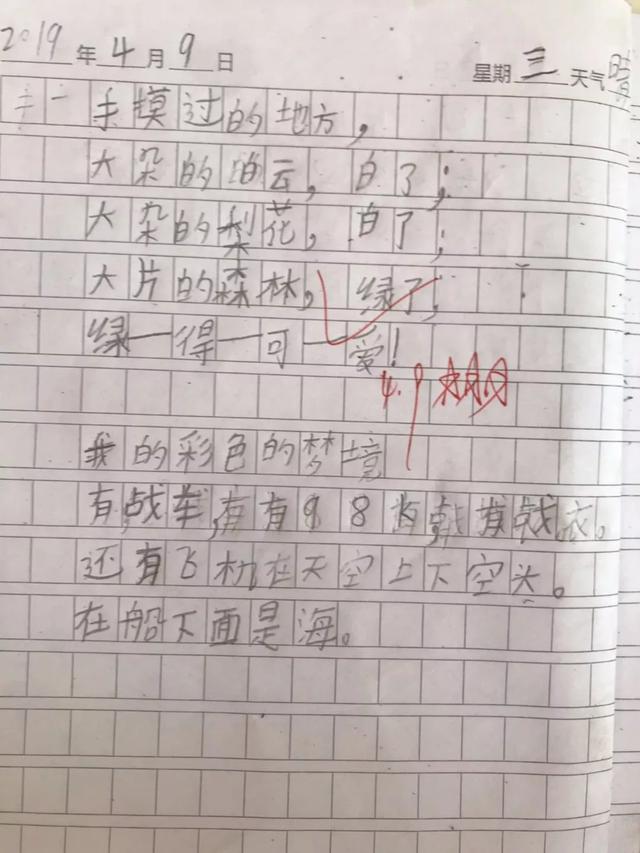 2019年4月9日 星期三天气晴
手一手摸过的地方，
大朵的白云，白了；
大朵的梨花，白了；
大片的森林，绿了；
绿一得一可一爱！
4.9
我的彩色的梦境
有战车，有有98
还有飞机在天空上下空头。
在船下面是海。